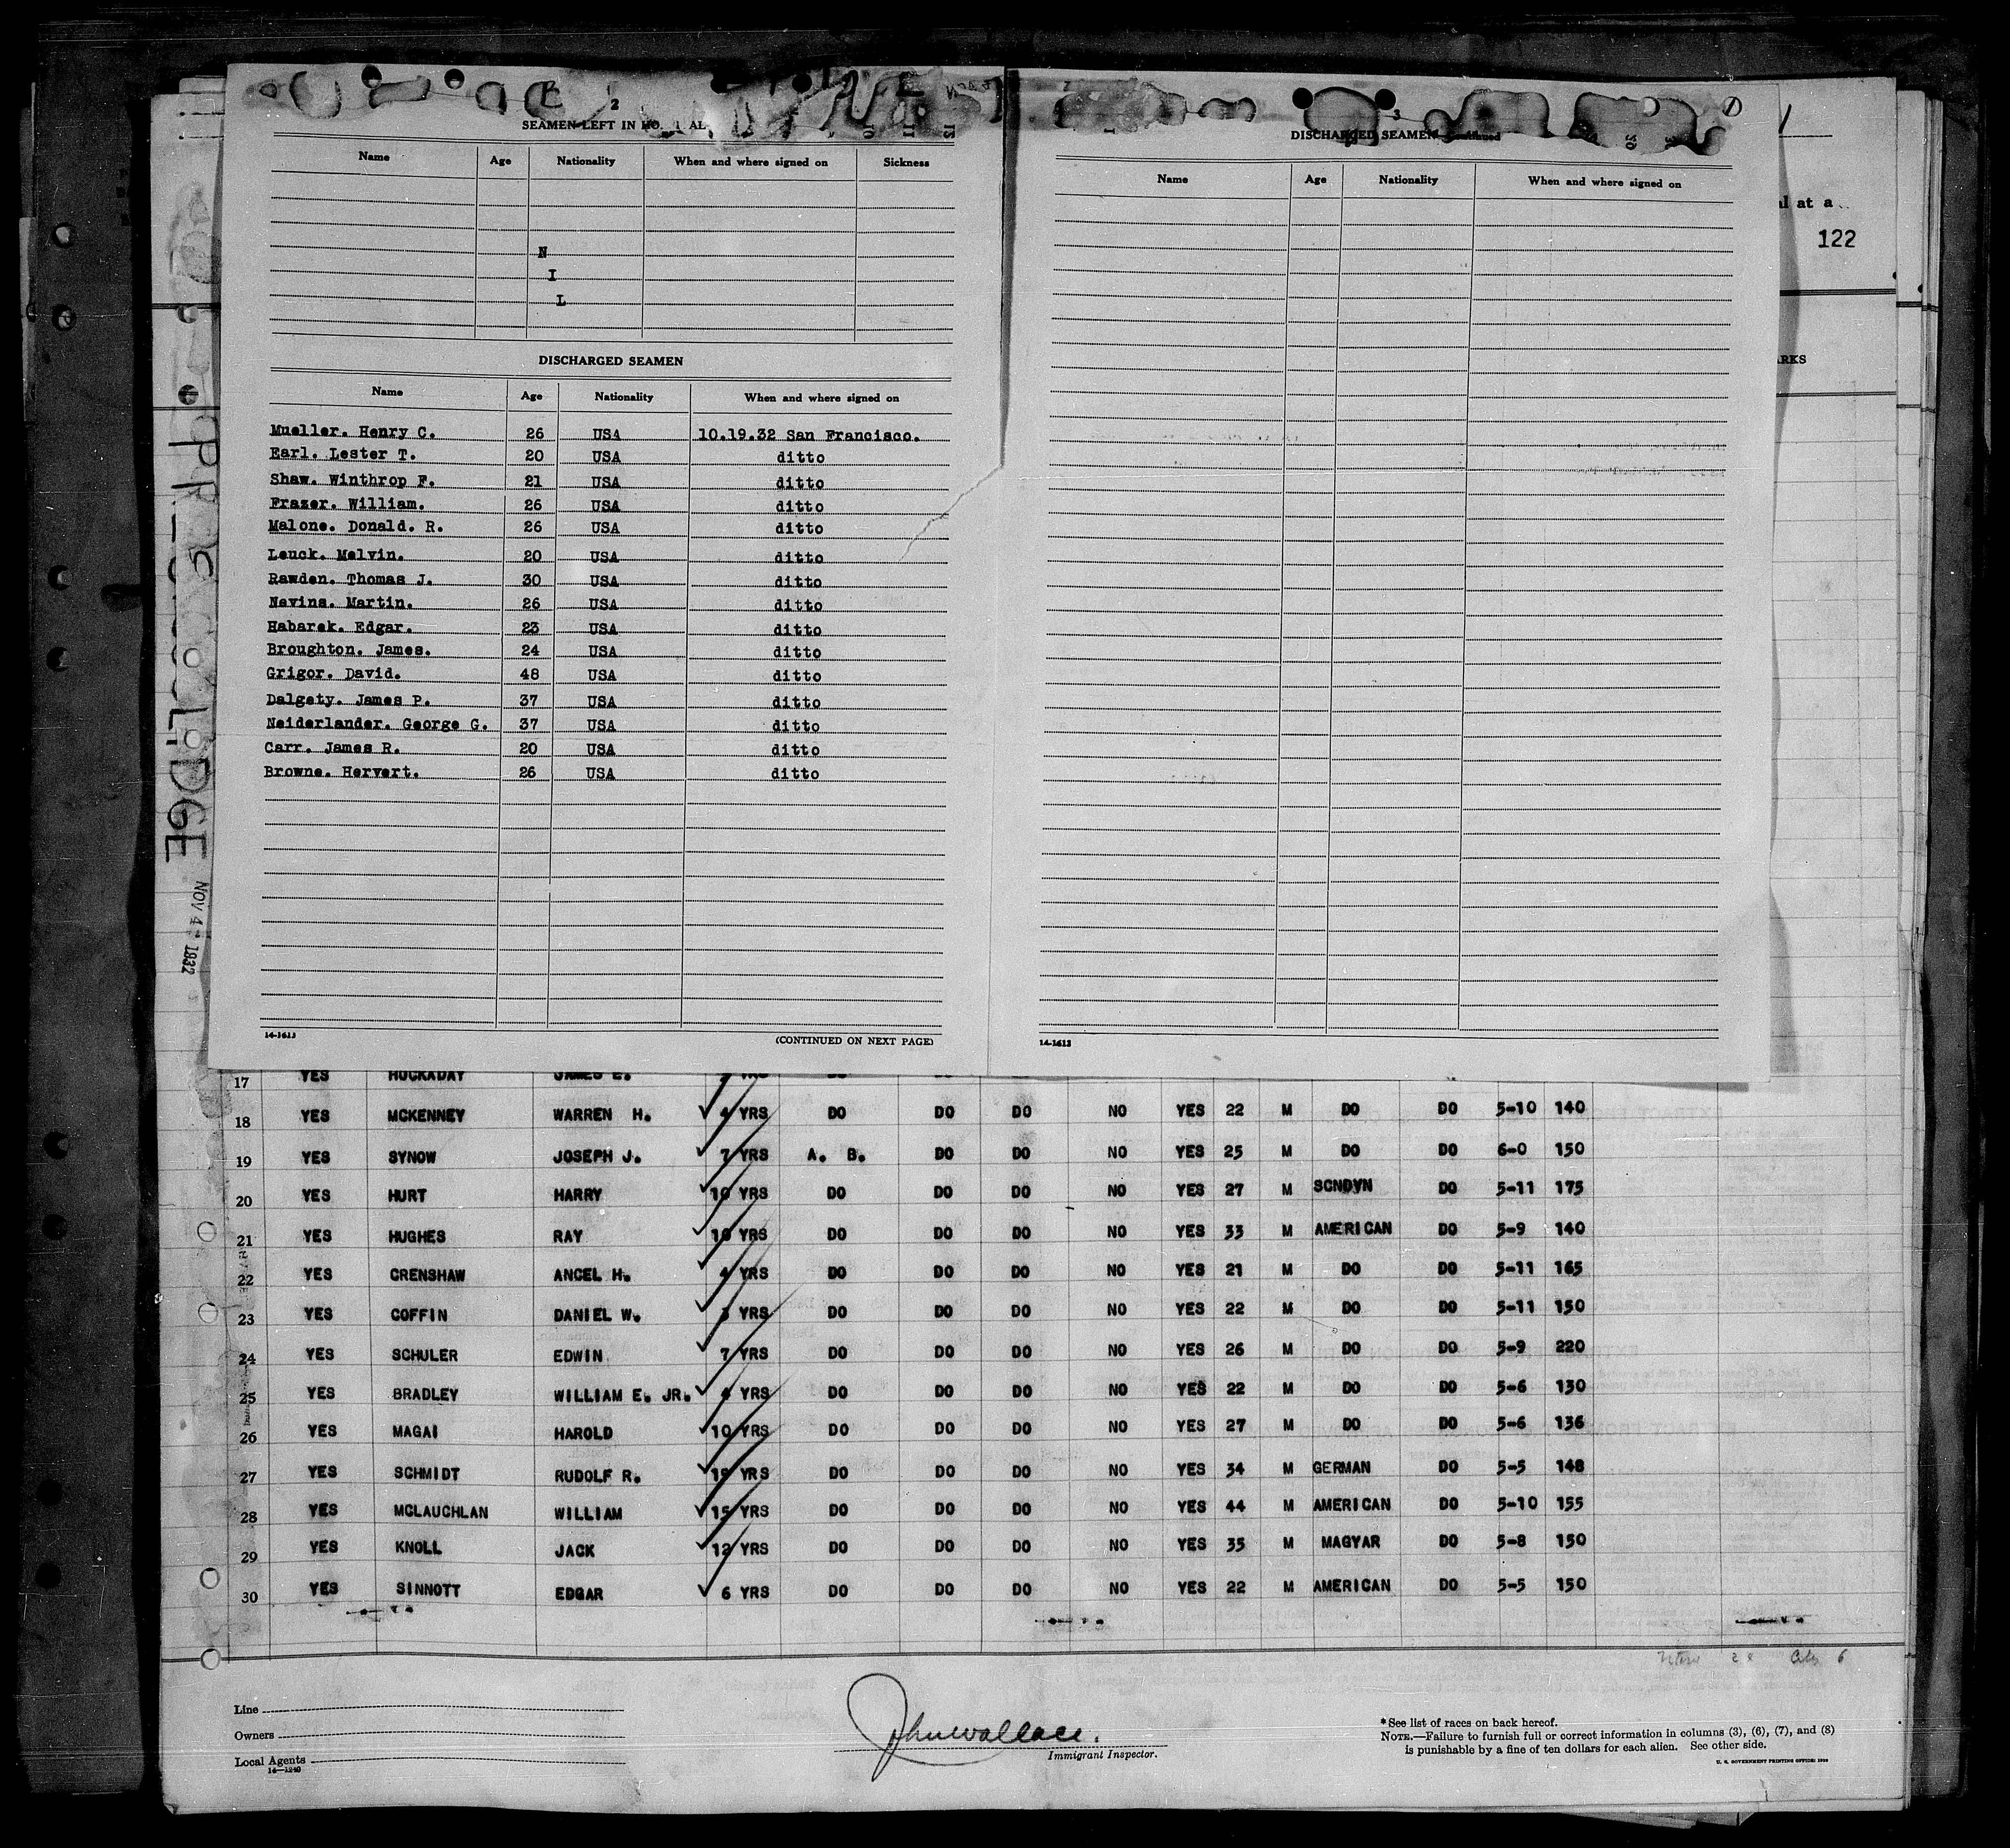 2
SEAMEN LEFT IN
Name Age Nationality When and where signed on Sickness
N
I
L
DISCHARGED SEAMEN
Name Age Nationality When and where signed on
Mueller. Henry C. 26 USA 10.19.32 San Francisco.
Earl. Lester T. 20 USA ditto
Shaw. Winthrop F. 21 USA ditto
Frazer. William. 26 USA ditto
Malone. Donald. R. 26 USA ditto
Leuck. Melvin. 20 USA ditto
Rawden. Thomas J. 30 USA ditto
Nevins. Martin. 26 USA ditto
Habarek. Edgar. 23 USA ditto
Broughton. James. 24 USA ditto
Grigor. David. 48 USA ditto
Dalgety. James P. 37 USA ditto
Neiderlander. George G. 37 USA ditto
Carr. James R. 20 USA ditto
Browne. Hervert. 26 USA ditto
14-1613
(CONTINUED ON NEXT PAGE)
3
DISCHARGED SEAMEN
Name Age Nationality When and where signed on
14-1613
al at a
122
ARKS
NOV 4 - 1932
17 YES HUCKADAY JAMES E. YRS
18 YES MCKENNEY WARREN H. 4 YRS DO DO DO NO YES 22 M DO DO 5-10 140
19 YES SYNOW JOSEPH J. 7 YRS A. B. DO DO NO YES 25 M DO DO 6-0 150
20 YES HURT HARRY 10 YRS DO DO DO NO YES 27 M SCNDVN DO 5-11 175
21 YES HUGHES RAY 10 YRS DO DO DO NO YES 33 M AMERICAN DO 5-9 140
22 YES CRENSHAW ANCEL H. 4 YRS DO DO DO NO YES 21 M DO DO 5-11 165
23 YES COFFIN DANIEL W. 3 YRS DO DO DO NO YES 22 M DO DO 5-11 150
24 YES SCHULER EDWIN 7 YRS DO DO DO NO YES 26 M DO DO 5-9 220
25 YES BRADLEY WILLIAM E. JR. 4 YRS DO DO DO NO YES 22 M DO DO 5-6 130
26 YES MAGAI HAROLD 10 YRS DO DO DO NO YES 27 M DO DO 5-6 136
27 YES SCHMIDT RUDOLF R. YRS DO DO DO NO YES 34 M GERMAN DO 5-5 148
28 YES MCLAUCHLAN WILLIAM 15 YRS DO DO DO NO YES 44 M AMERICAN DO 5-10 155
29 YES KNOLL JACK 12 YRS DO DO DO NO YES 35 M MAGYAR DO 5-8 150
30 YES SINNOTT EDGAR 6 YRS DO DO DO NO YES 22 M AMERICAN DO 5-5 150
Line
Owners
Local Agents
14-1240
John Wallace.
Immigrant Inspector.
*See list of races on back hereof.
NOTE.—Failure to furnish full or correct information in columns (3), (6), (7), and (8)
is punishable by a fine of ten dollars for each alien. See other side.